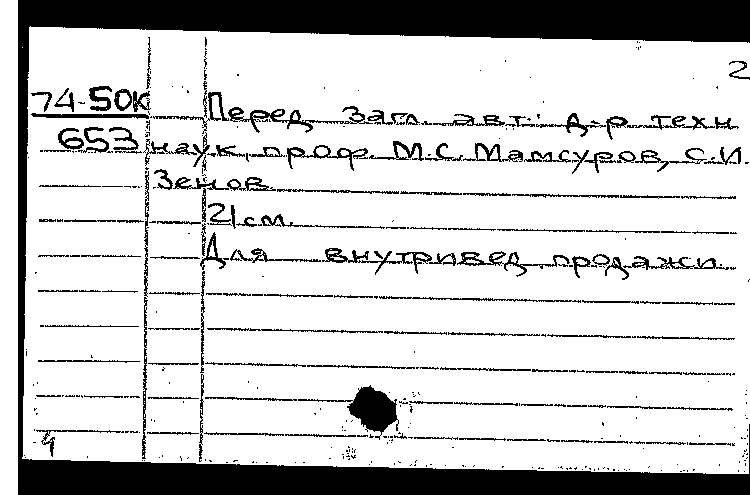 2
74-50К Перед загл. авт.: д-р техн
653 наук, проф. М.С. Мамсуров, С.И.
Зенов
21см.
Для внутривед. продажи.
4